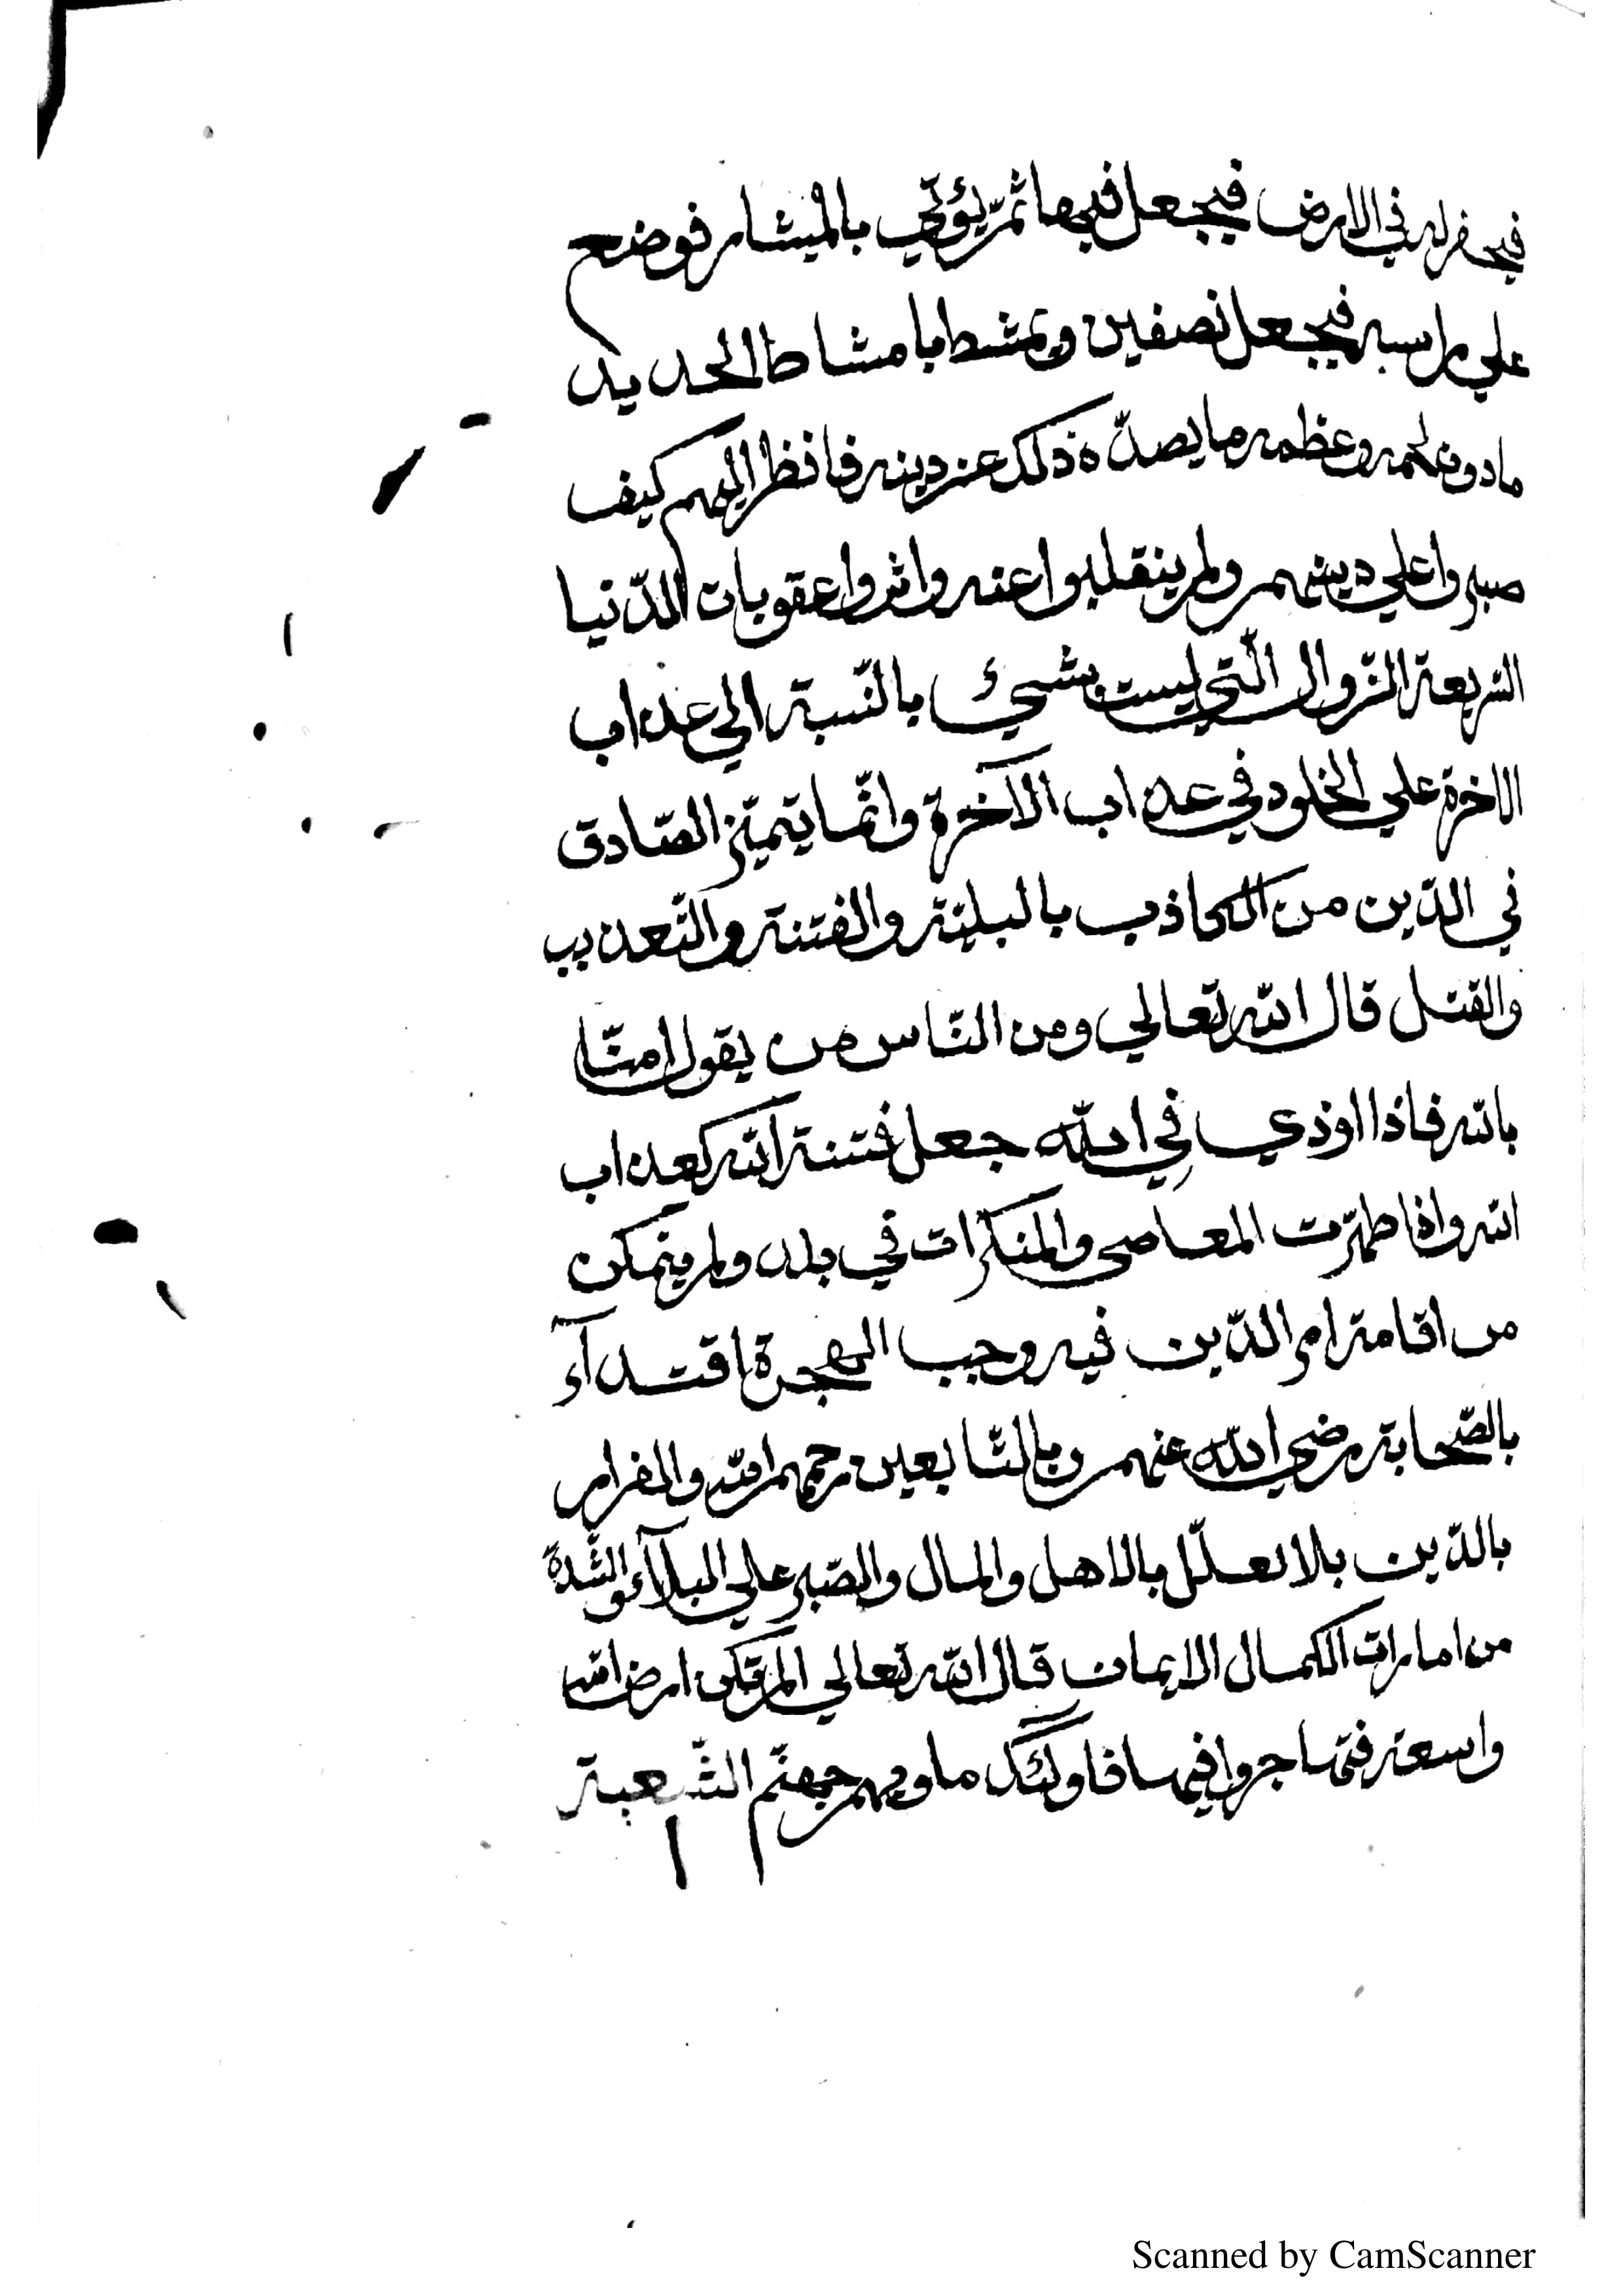 فيحفر له في الارض فيجعل فيها ثمّ يؤتي بالميشار فوضع
علي راسه فيجعل نصفين ويمشط بامشاط الحديد
مادون لحمه وعظمه ما يصدّه ذلك عن دينه فانظر اليهم كيف
صبروا علي دينهم ولم ينقلبوا عنه واثروا عقوبات الدّنيا
السّريعة الزّوال الّتي ليست بشيئ بالنّسبة الي عذاب
الاخرة علي الخلود في عذاب الآخرة وانّما يتميّز الصّادق
في الدّين من الكاذب بالبليّة والفتنة والتّعذيب
والقتل قال الله تعالي ومن النّاس من يقول امنّا
بالله فاذا اوذي في الله جعل فتنة الله كعذاب
الله واذا ظهرت المعاصي والمنكرات في بلد ولم يتمكن
من اقامة امر الدّين فيه وجب الهجرة اقتدآء
بالصّحابة رضي الله عنهم وبالتّابعين رحمهم الله والفرار
بالدّين بلا تعلّل بالاهل والمال والصّبر علي البلآء والشّدة
من امارات الكمال الايمان قال الله تعالي الم تكن ارض الله
واسعة فتهاجروا فيها فاولئك ماويهم جهنّم الشّعبة
Scanned by CamScanner